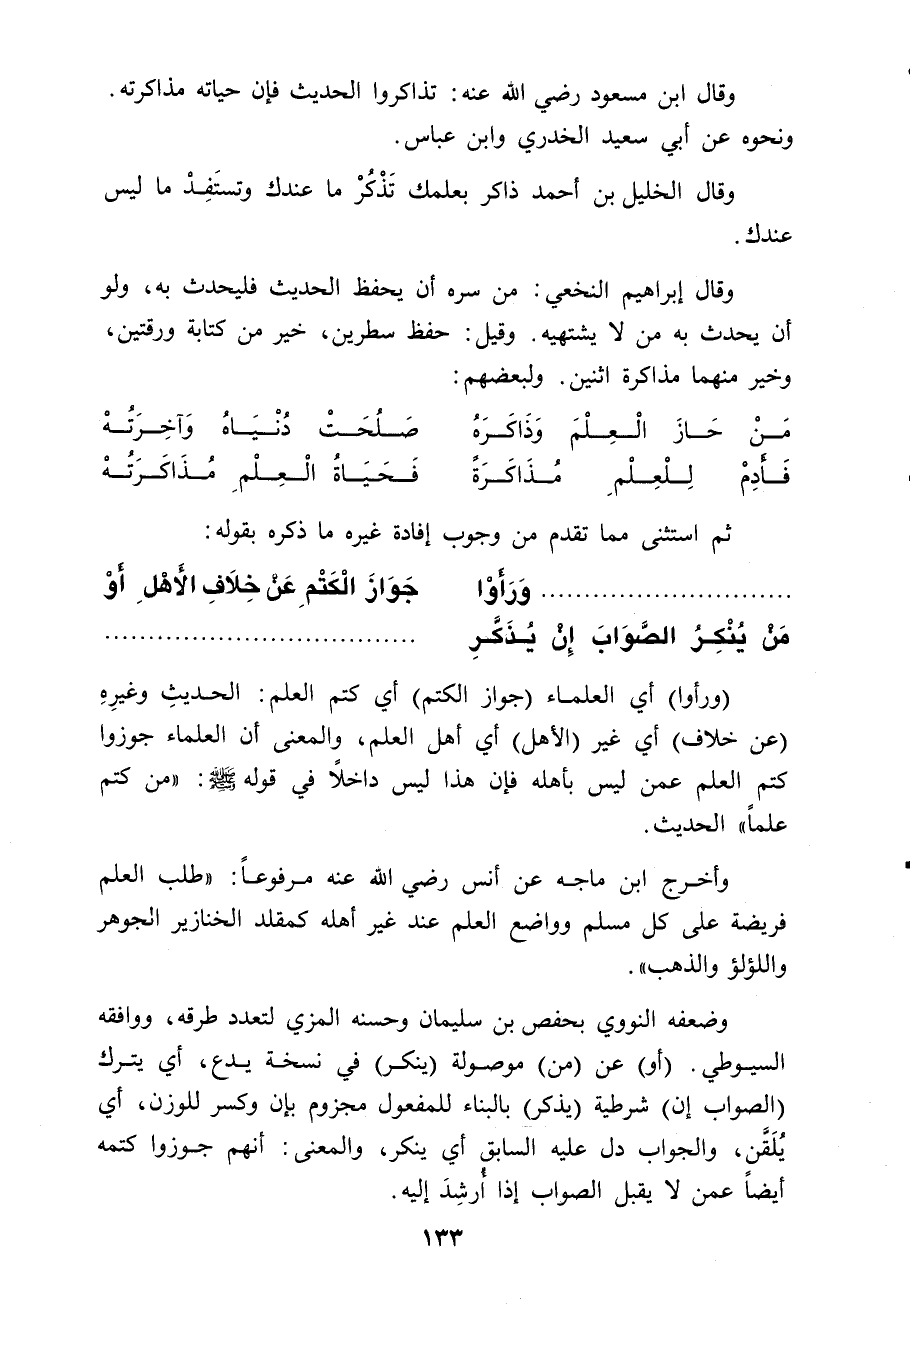 وقال ابن مسعود رضي الله عنه: تذاكروا الحديث فإن حياته مذاكرته.
ونحوه عن أبي سعيد الخدري وابن عباس.
وقال الخليل بن أحمد ذاكر بعلمك تَذْكُرْ ما عندك وتستَفِدْ ما ليس
عندك.
وقال إبراهيم النخعي: من سره أن يحفظ الحديث فليحدث به، ولو
أن يحدث به من لا يشتهيه. وقيل: حفظ سطرين، خير من كتابة ورقتين،
وخير منهما مذاكرة اثنين. ولبعضهم:
مَنْ حَازَ الْعِلْمَ وَذَاكَرَهُ صَلُحَتْ دُنْيَاهُ وَآخِرَتُهْ
فَأَدِمْ لِلْعِلْمِ مُذَاكَرَةً فَحَيَاةُ الْعِلْمِ مُذَاكَرَتُهْ
ثم استثنى مما تقدم من وجوب إفادة غيره ما ذكره بقوله:
............................ وَرَأَوْا جَوَازَ الْكَتْمِ عَنْ خِلَافِ الأَهْلِ أَوْ
مَنْ يُنْكِرُ الصَّوَابَ إِنْ يُذَكَّرِ ..................................
(ورأوا) أي العلماء (جواز الكتم) أي كتم العلم: الحديثِ وغيرِهِ
(عن خلاف) أي غير (الأهل) أي أهل العلم، والمعنى أن العلماء جوزوا
كتم العلم عمن ليس بأهله فإن هذا ليس داخلاً في قوله ﷺ: «من كتم
علماً» الحديث.
وأخرج ابن ماجه عن أنس رضي الله عنه مرفوعاً: «طلب العلم
فريضة على كل مسلم وواضع العلم عند غير أهله كمقلد الخنازير الجوهر
واللؤلؤ والذهب».
وضعفه النووي بحفص بن سليمان وحسنه المزي لتعدد طرقه، ووافقه
السيوطي. (أو) عن (من) موصولة (ينكر) في نسخة يدع، أي يترك
(الصواب إن) شرطية (يذكر) بالبناء للمفعول مجزوم بإن وكسر للوزن، أي
يُلَقَّن، والجواب دل عليه السابق أي ينكر، والمعنى: أنهم جوزوا كتمه
أيضاً عمن لا يقبل الصواب إذا أُرشِدَ إليه.
١٣٣